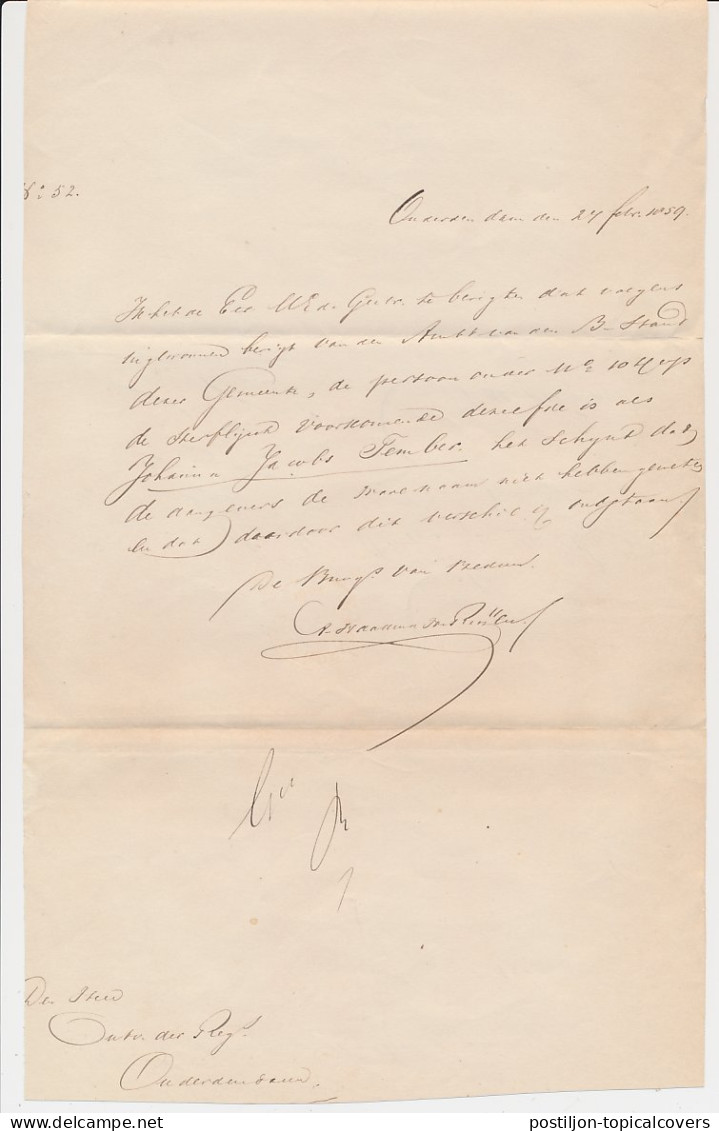 No 52.
Onderdendam den 24 febr. 1859.
Ik heb de Eer UEd. Gestr. te berigten dat volgens
ingewonnen berigt van den Ambt van den B. Stand
dezer Gemeente, de persoon onder No 10
de sterflijst voorkomende dezelfde is als
Johanna Jacobs Tember. het schijnt dat
de aangevers de ware naam niet hebben geweten
en dat daardoor dit verschil is ontstaan
De Burgr van Bedum
Den Heer
Ontv. der Regt.
Onderdendam.
postiljon-topicalcovers